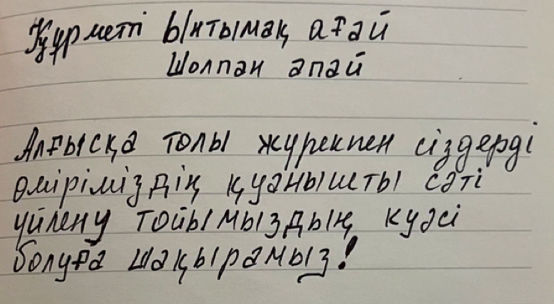 Құрметті Ынтымақ ағай
Шолпан апай
Алғысқа толы жүрекпен сіздерді
өміріміздің қуанышты сәті
үйлену тойымыздың куәсі
болуға шақырамыз!